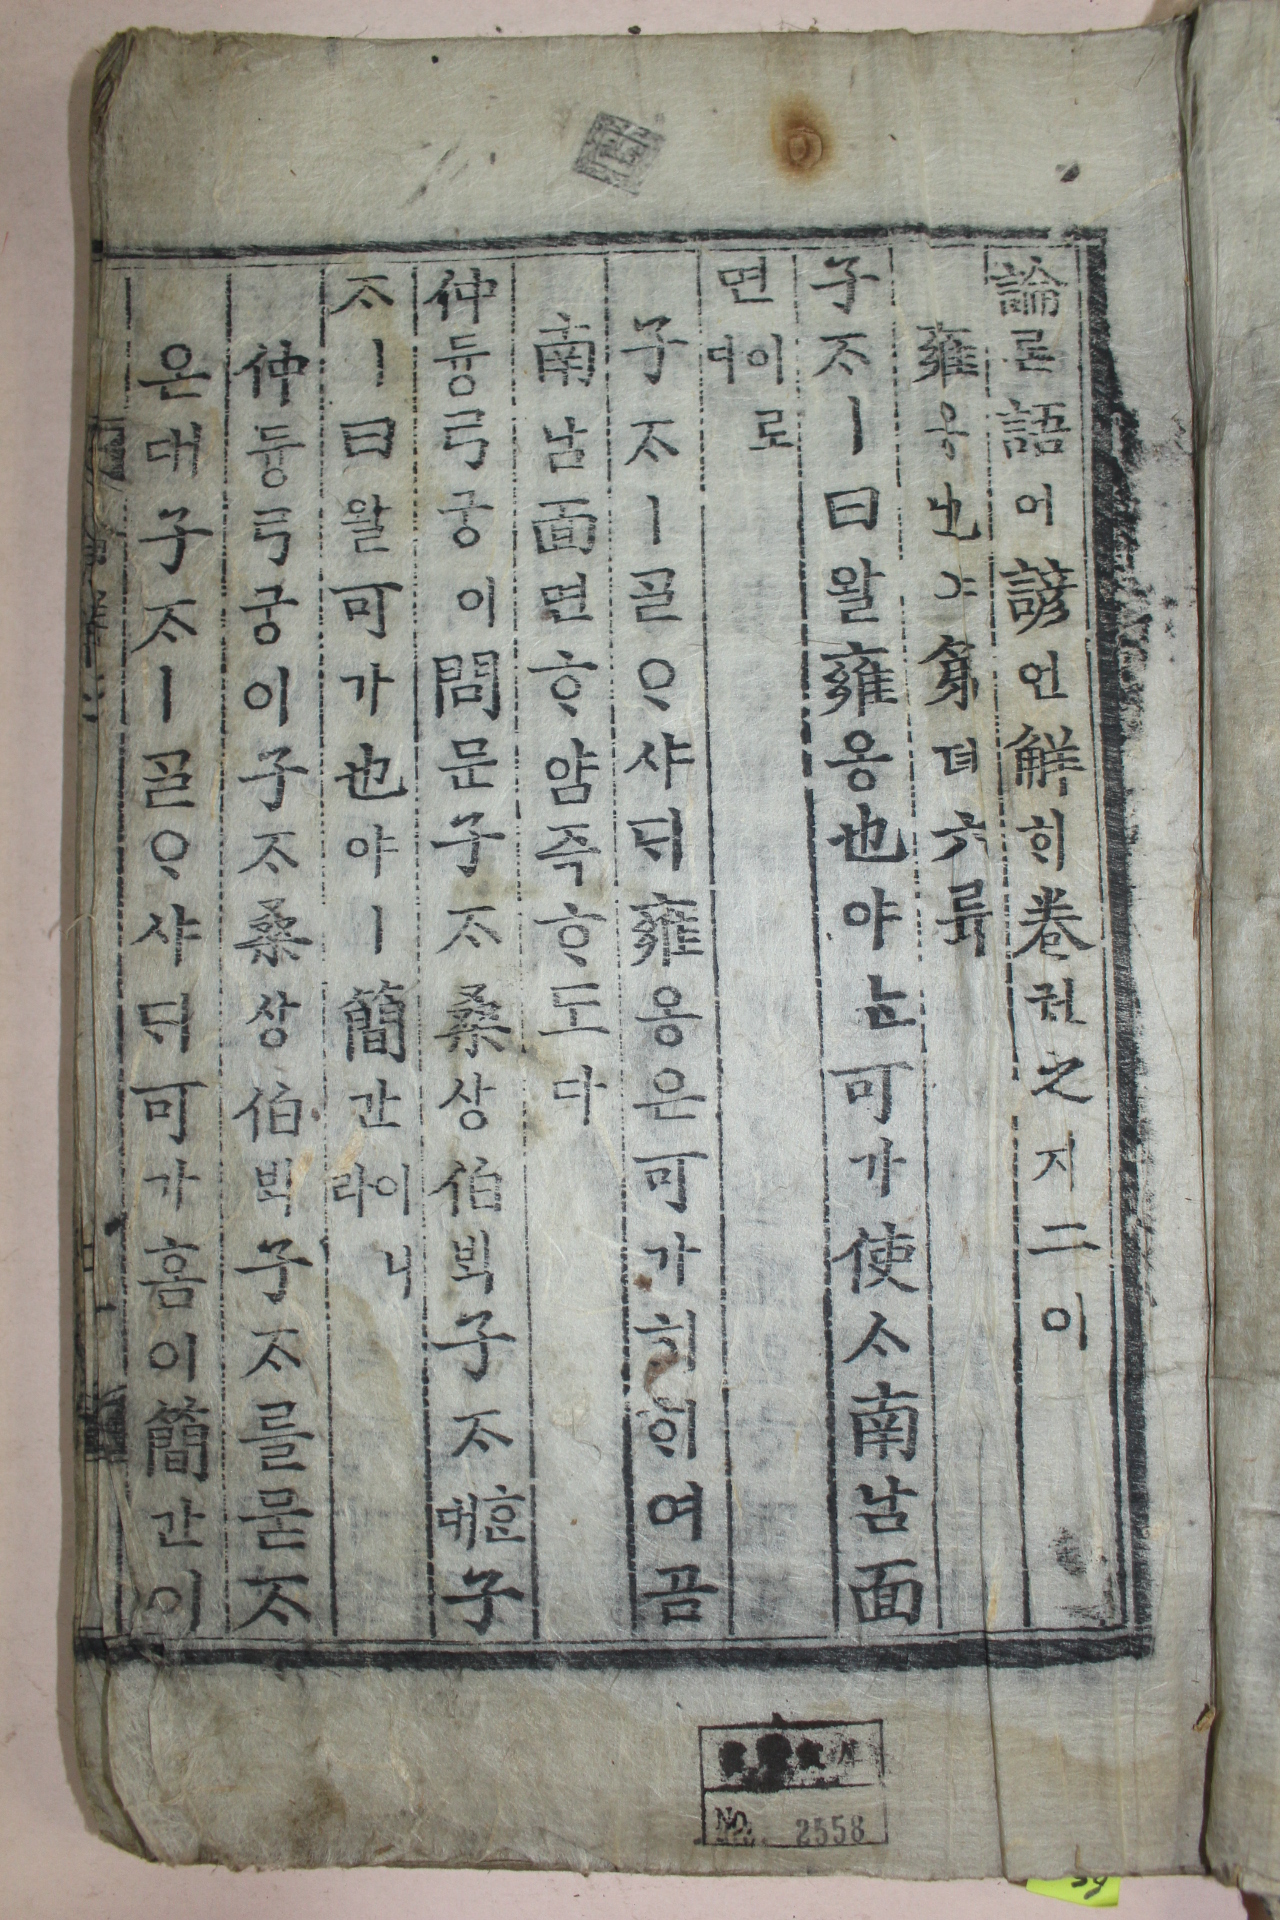 論론語어諺언解ᄒᆡ卷권之지二이
雍옹也야第뎨六륙
子ᄌᆞㅣ曰왈雍옹也야ᄂᆞᆫ可가使ᄉᆞ南남面
면이로다
子ᄌᆞㅣᄀᆞᆯᄋᆞ샤ᄃᆡ雍옹은可가히ᄒᆡ여곰
南남面면ᄒᆞ얌즉ᄒᆞ도다
仲듕弓궁이問문子ᄌᆞ桑상伯ᄇᆡᆨ子ᄌᆞᄒᆞᆫ대子
ᄌᆞㅣ曰왈可가也야ㅣ簡간이니라
仲듕弓궁이子ᄌᆞ桑상伯ᄇᆡᆨ子ᄌᆞ를묻ᄌᆞ
온대子ᄌᆞㅣᄀᆞᆯᄋᆞ샤ᄃᆡ可가홈이簡간이
NO. 2558